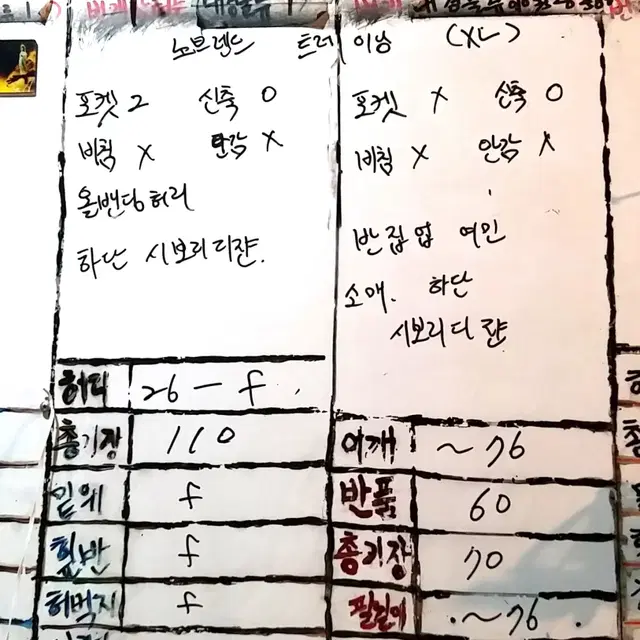 노브랜드 트레이닝 (XL)
포켓 2 신축 O
비침 X 안감 X
올밴딩 허리
하단 시보리 디쟌.
허리 26 - f
총기장 110
밑위 f
힢반 f
허벅지 f
포켓 X 신축 O
비침 X 안감 X
반집업 여민
소매. 하단
시보리 디쟌
어깨 ~76
반품 60
총기장 70
팔길이 ~76